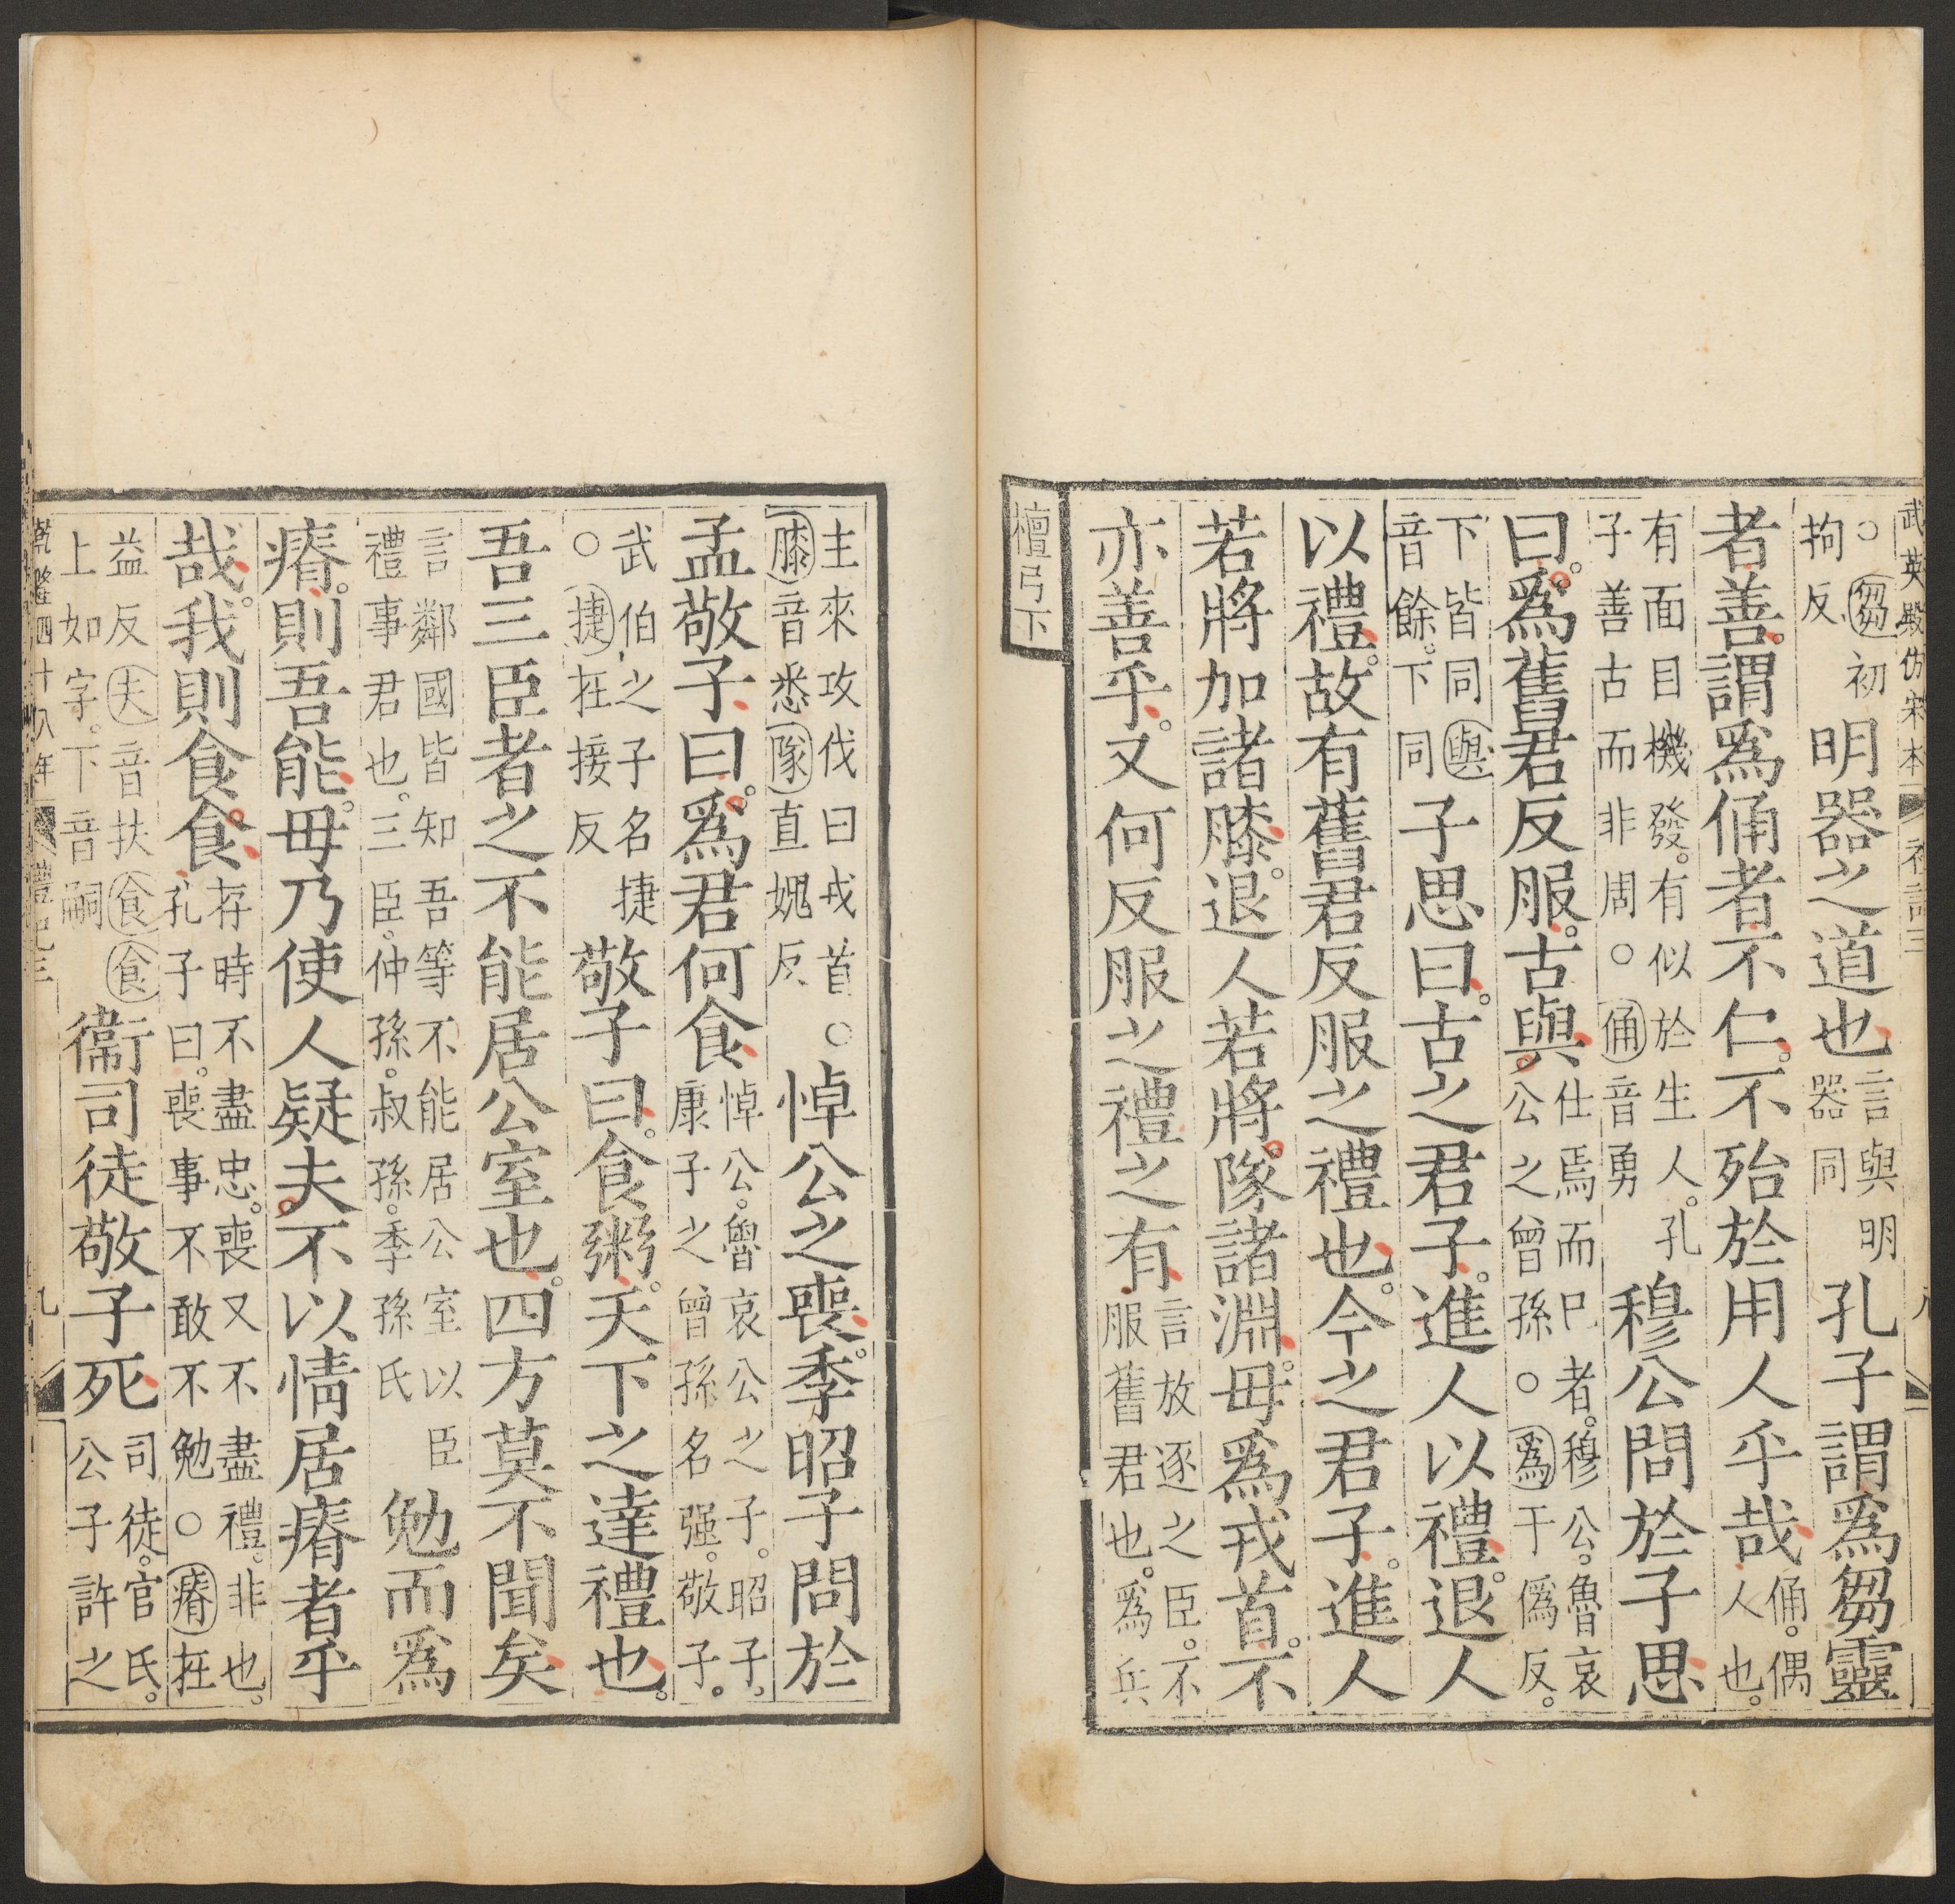 武英殿仿宋本 禮記三 八
○芻初拘反明器之道也言與明器同孔子謂爲芻靈
者善。謂爲俑者不仁。不殆於用人乎哉俑。偶人也。
有面目機發。有似於生人。孔子善古而非周。○俑音勇穆公問於子思
曰。爲舊君反服。古與仕焉而已者。穆公。魯哀公之曾孫○爲于僞反。
下皆同與音餘。下同子思曰。古之君子。進人以禮。退人
以禮。故有舊君反服之禮也。今之君子。進人
若將加諸膝。退人若將隊諸淵。毋爲戎首。不
亦善乎。又何反服之禮之有言放逐之臣。不服舊君也。爲兵
檀弓下
主來攻伐曰戎首○膝音悉隊直媿反悼公之喪。季昭子問於
孟敬子曰。爲君何食悼公。魯哀公之子。昭子。康子之曾孫名强。敬子。
武伯之子名捷○捷在接反敬子曰。食粥。天下之達禮也。
吾三臣者之不能居公室也。四方莫不聞矣
言鄰國皆知吾等不能居公室以臣禮事君也。三臣。仲孫。叔孫。季孫氏勉而爲
瘠。則吾能。毋乃使人疑夫不以情居瘠者乎
哉。我則食食存時不盡忠。喪又不盡禮。非也。孔子曰。喪事不敢不勉○瘠在
益反夫音扶食食上如字。下音嗣衞司徒敬子死司徒。官氏。公子許之
乾隆四十八年 禮記三 九